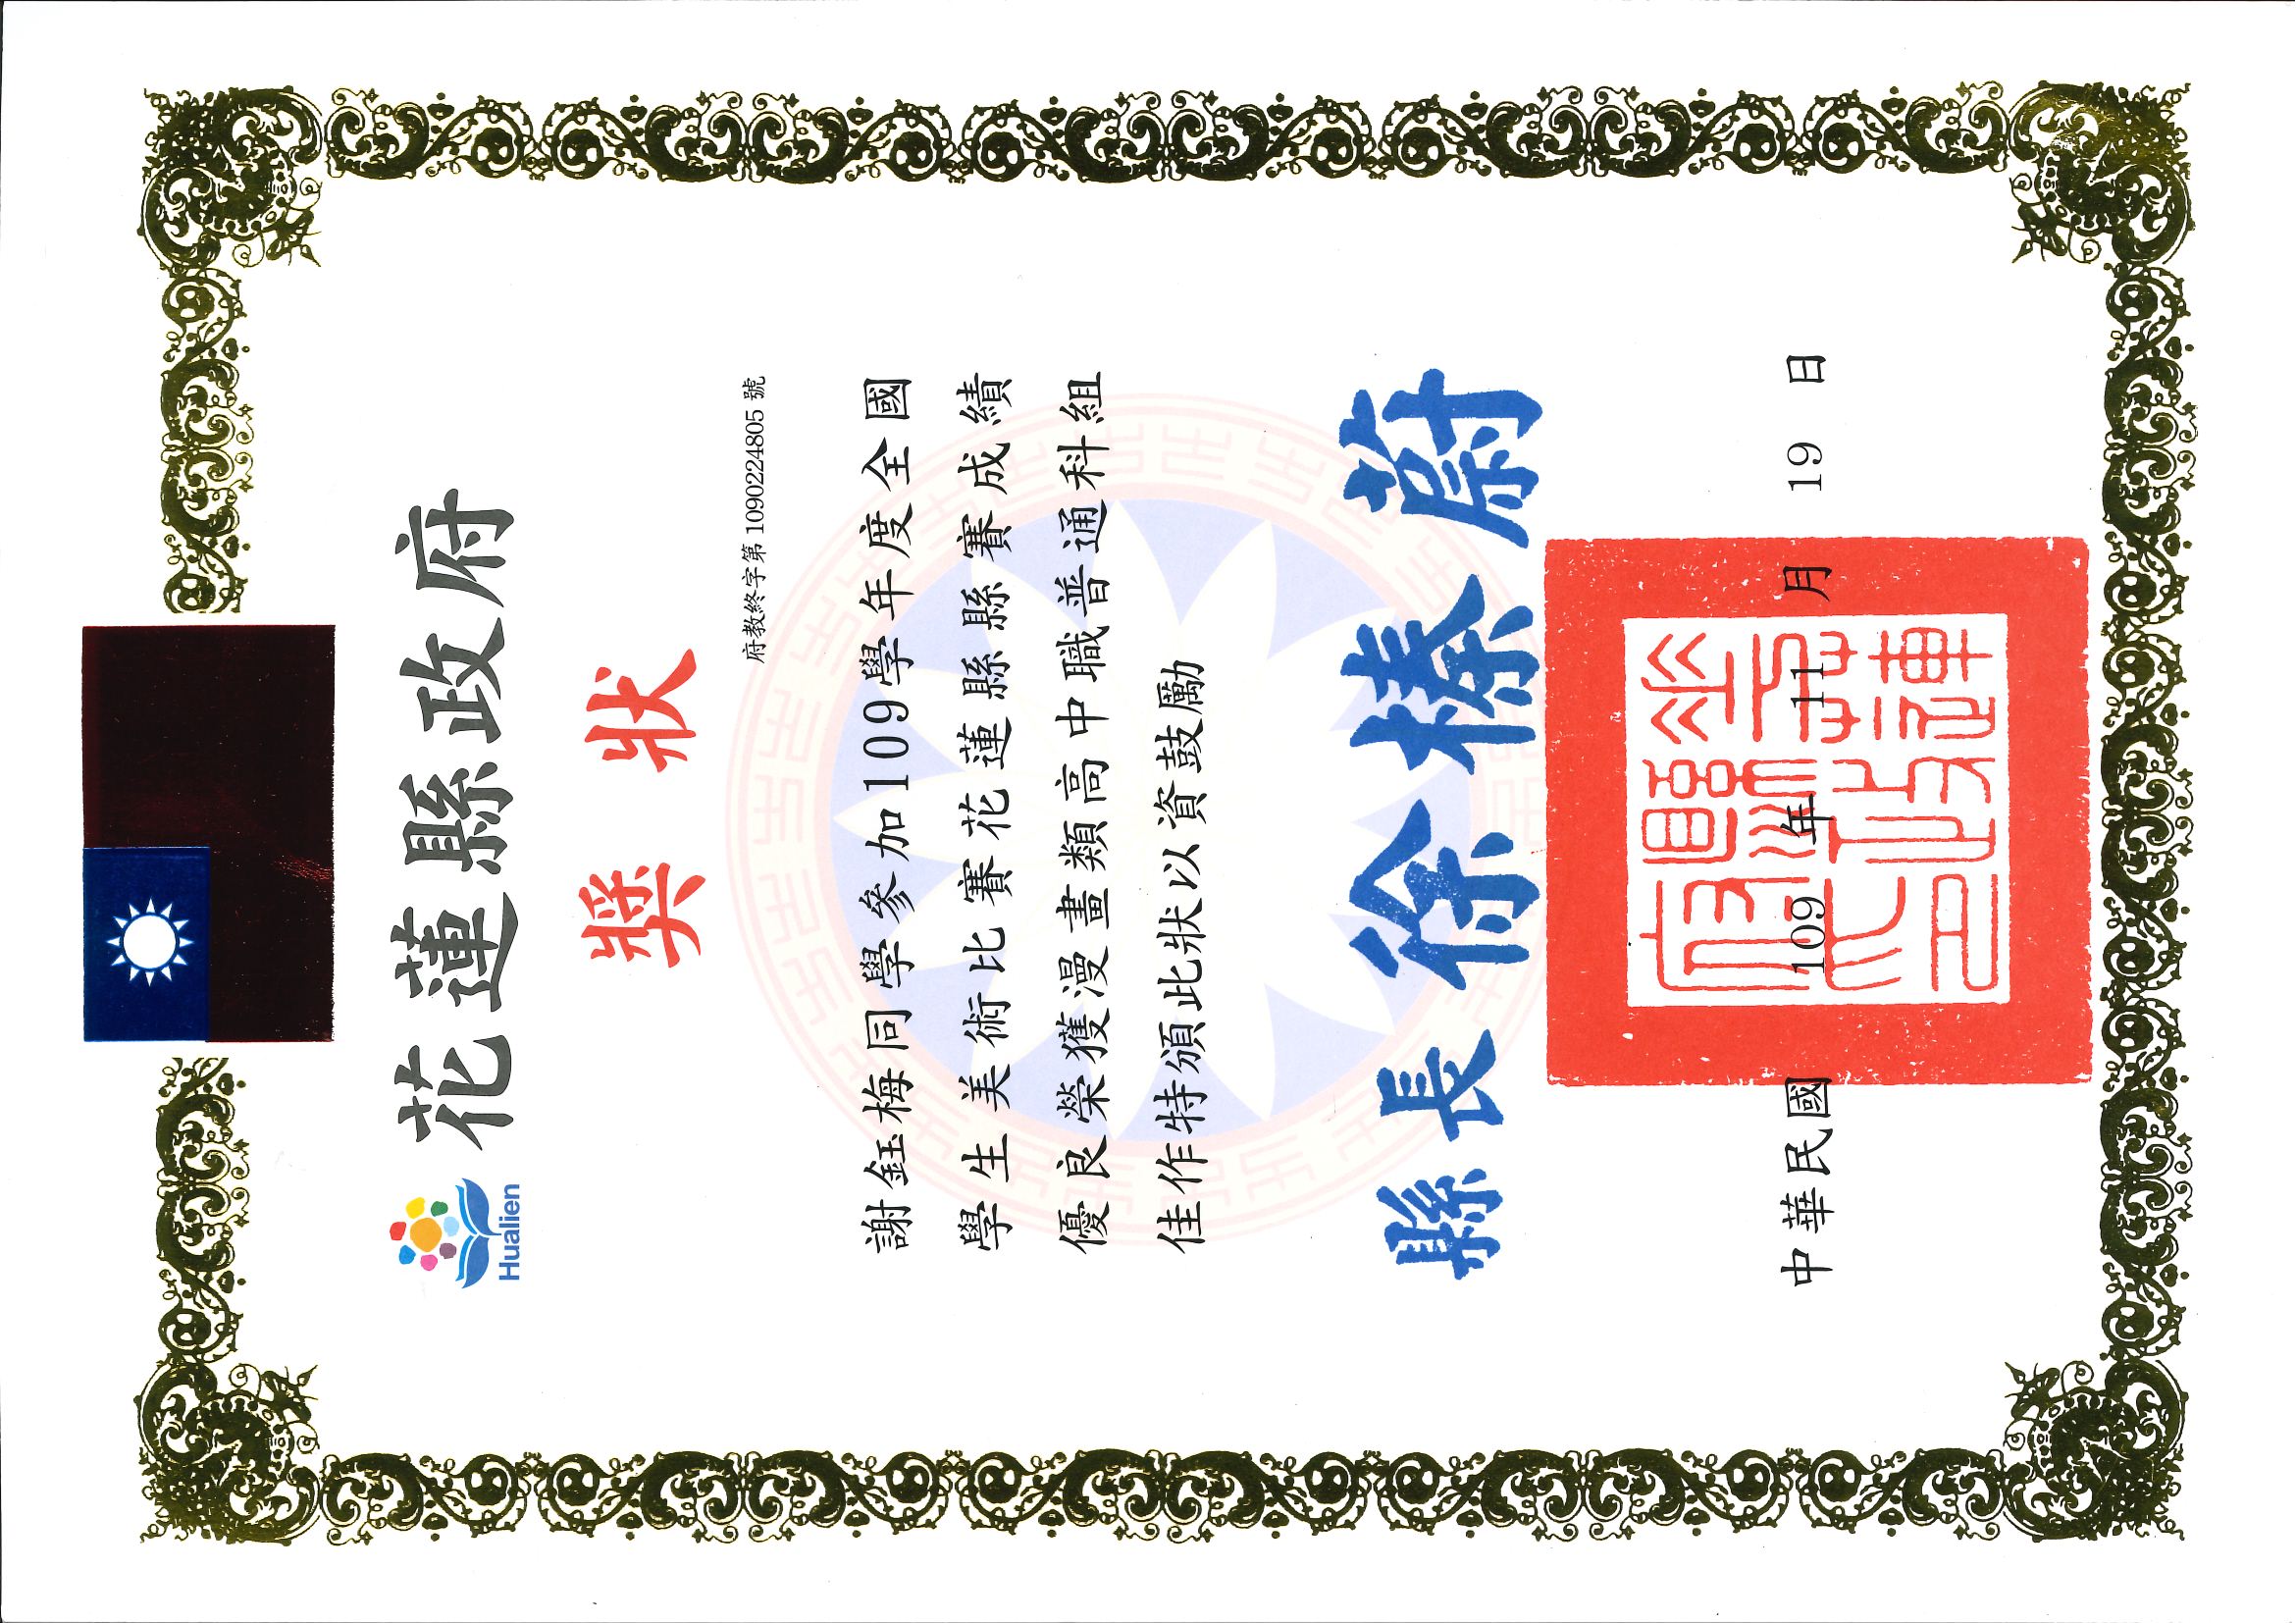 Hualien
花蓮縣政府
獎狀
府教終字第 1090224805 號
謝鈺梅同學參加109學年度全國
學生美術比賽花蓮縣縣賽成績
優良榮獲漫畫類高中職普通科組
佳作特頒此狀以資鼓勵
縣長 徐榛蔚
中華民國 109 年 11 月 19 日